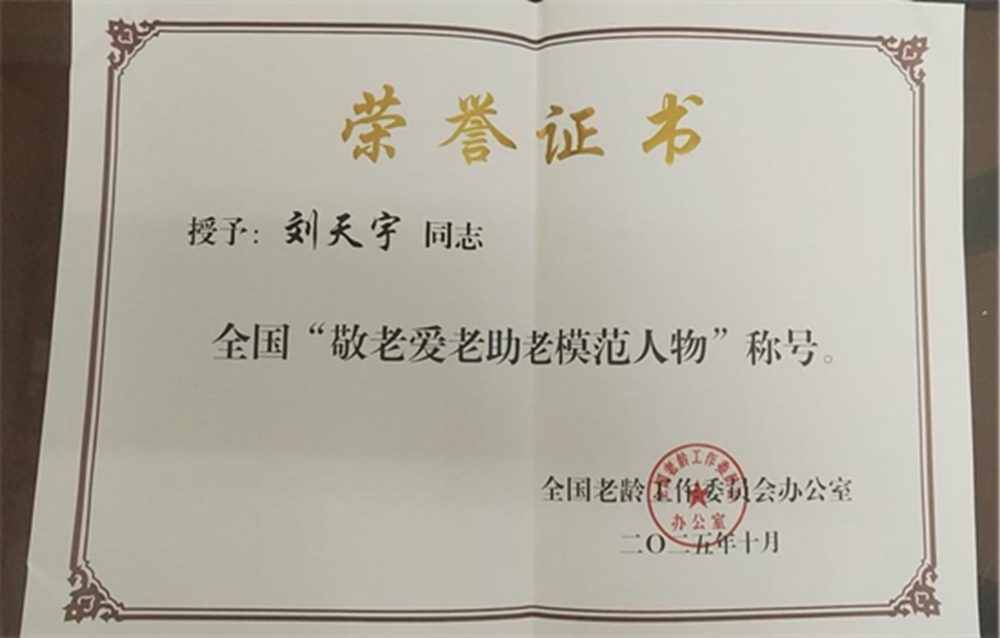 荣誉证书
授予：刘天宇 同志
全国“敬老爱老助老模范人物”称号。
全国老龄工作委员会办公室
二〇二五年十月
办公室